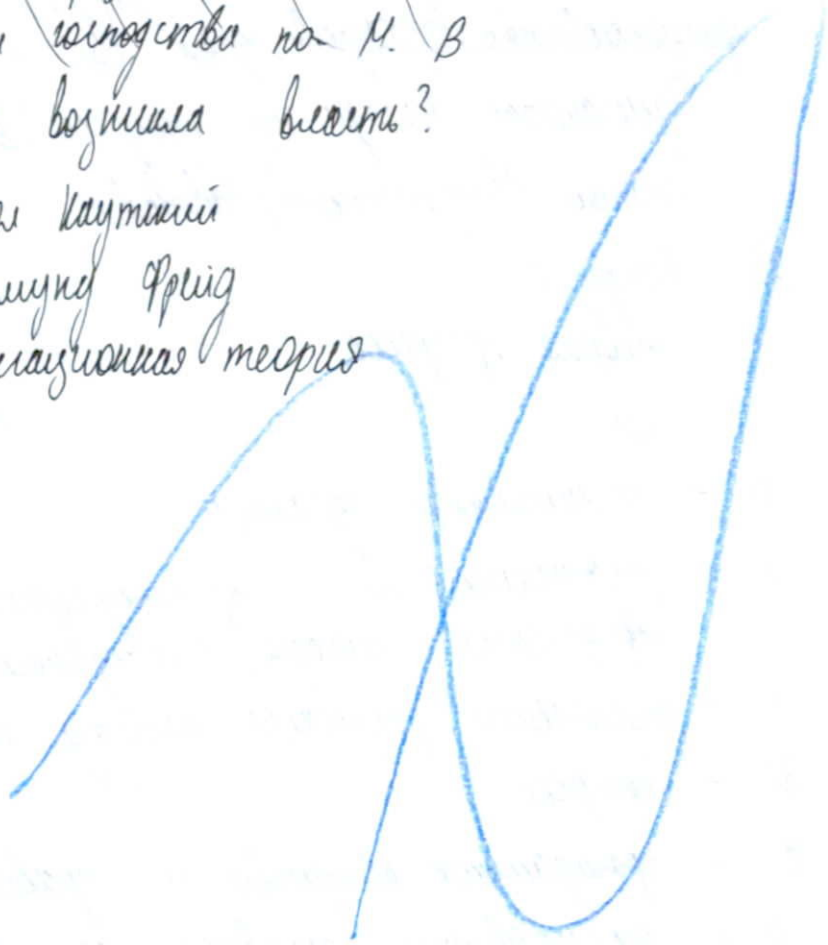 господства по М. В
возникла власть?
Каутский
мунд Фрейд
гационная теория